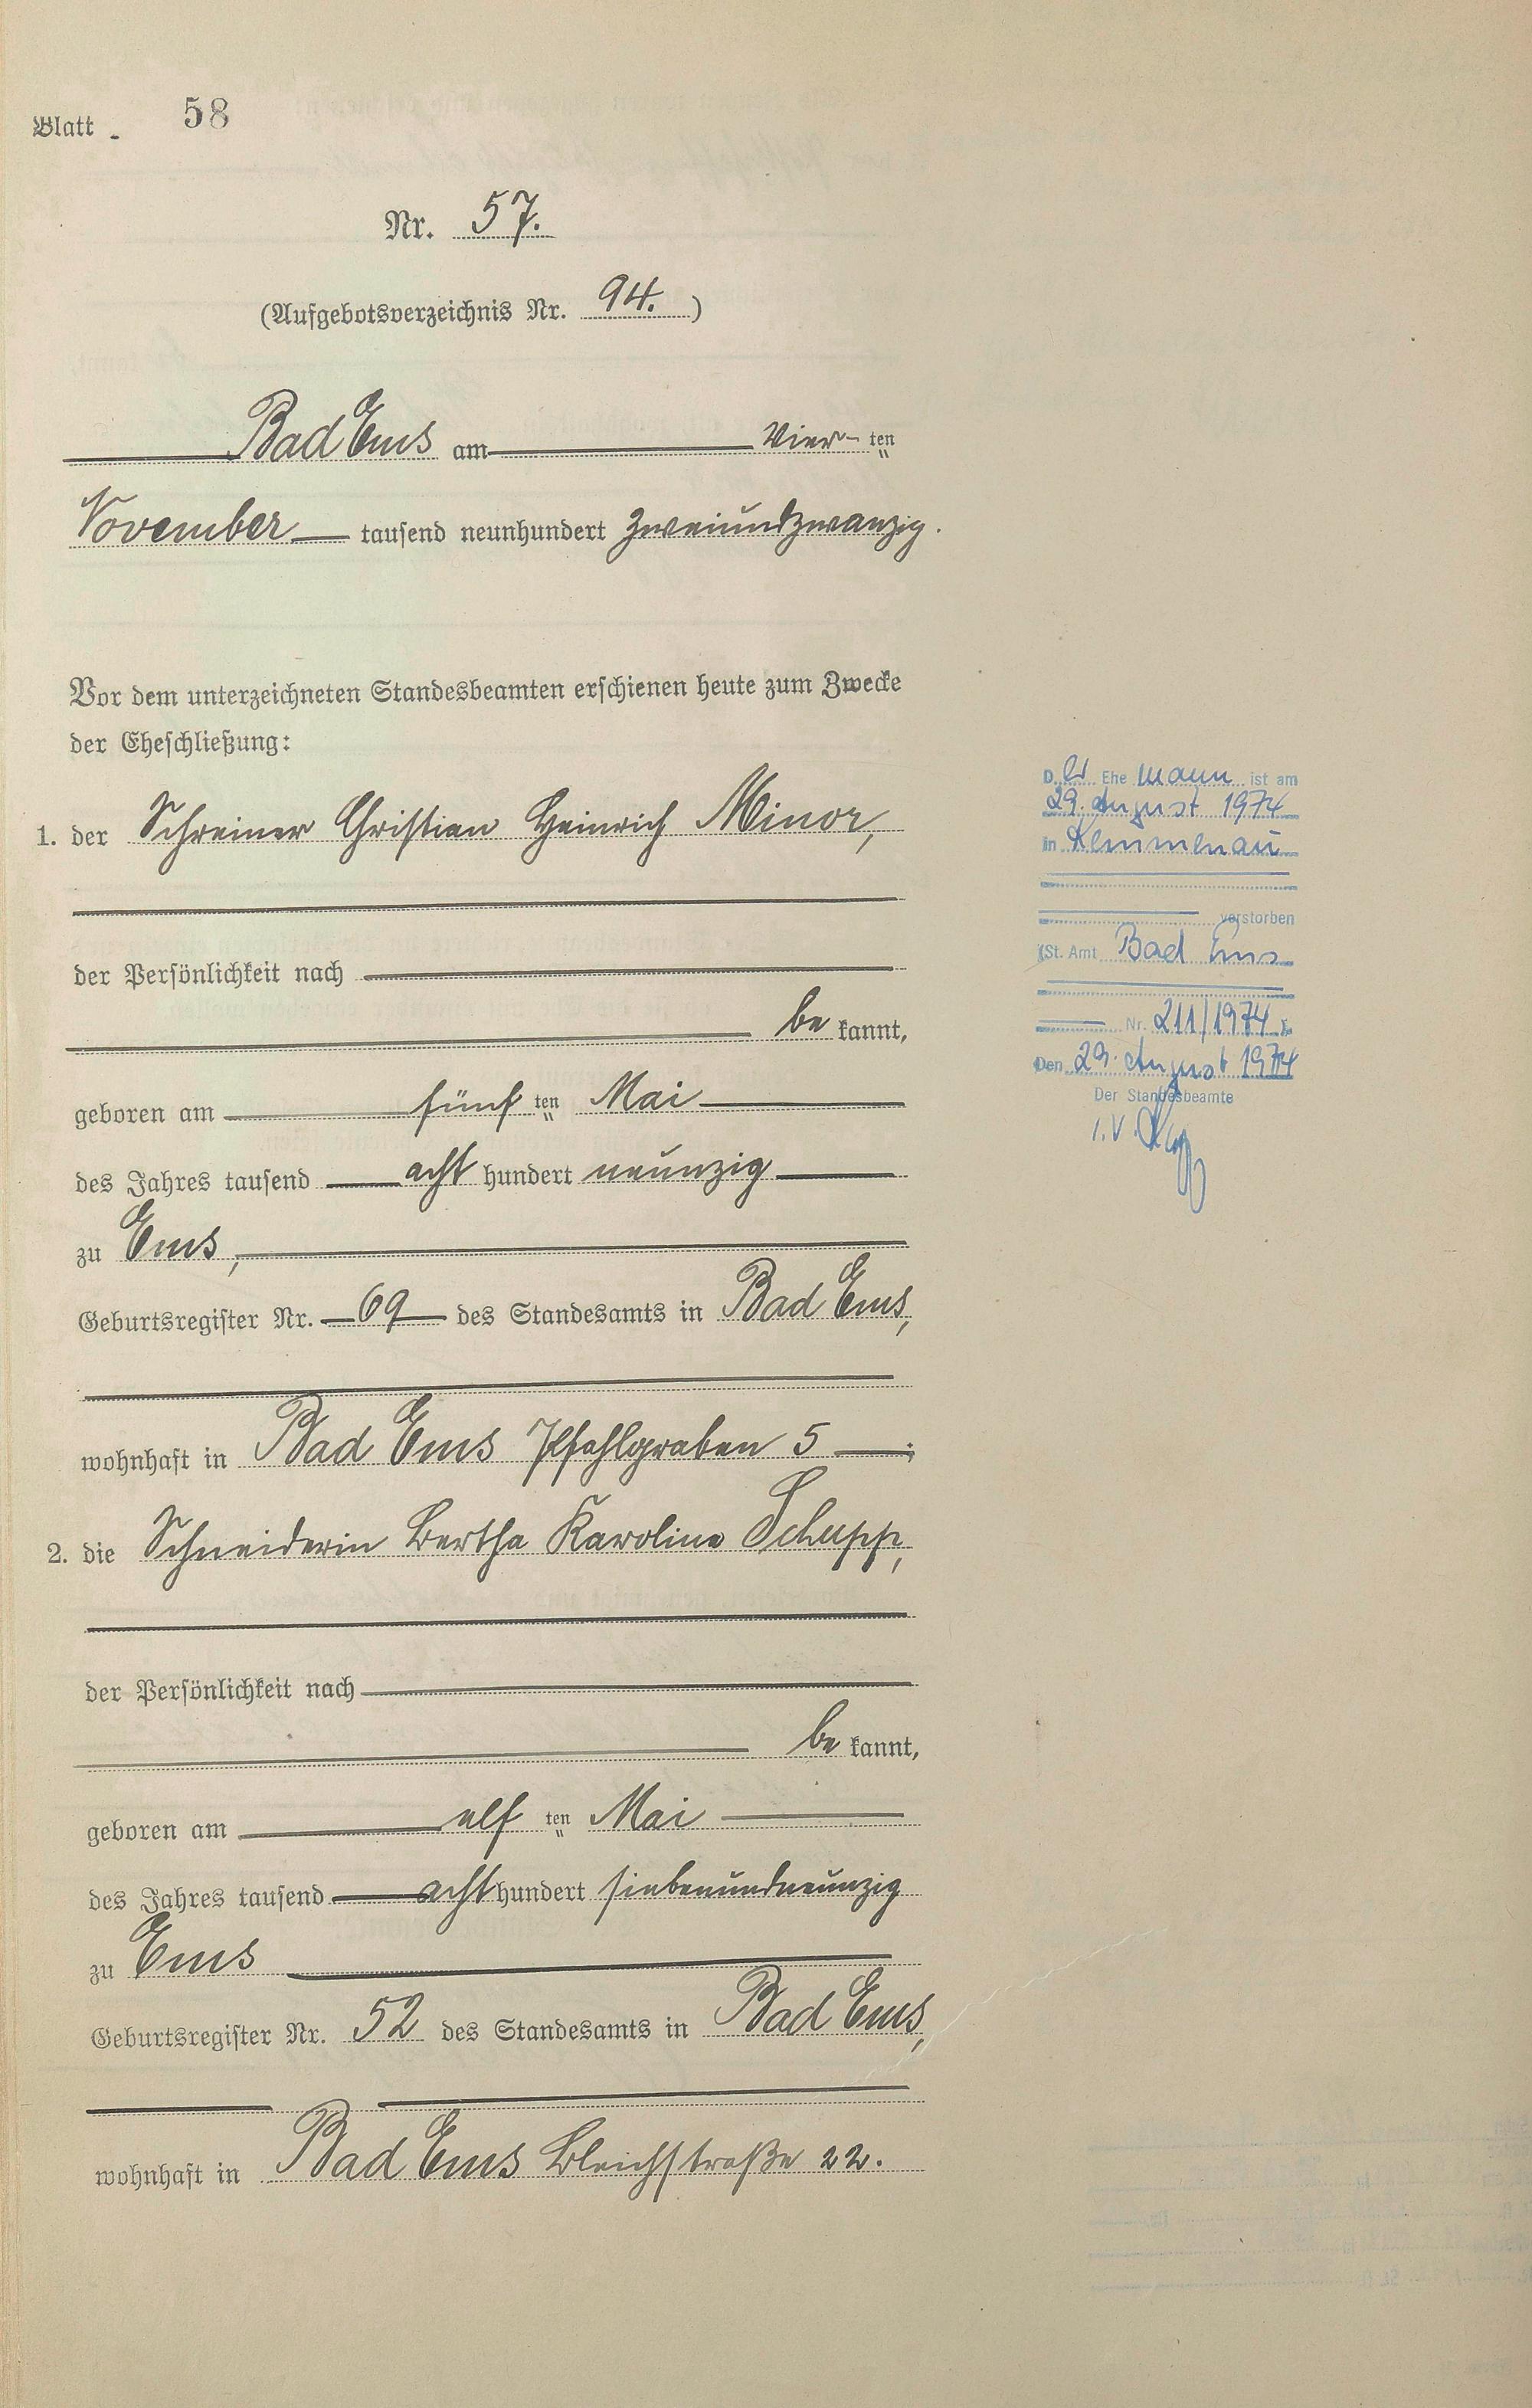 Blatt - 58
Nr. 57.
(Aufgebotsverzeichnis Nr. 94.)
Bad Ems am Vier- ten
November tausend neunhundert zweiundzwanzig.
Vor dem unterzeichneten Standesbeamten erschienen heute zum Zwecke
der Eheschließung:
1. der Schreiner Christian Heinrich Minor,
der Persönlichkeit nach
be kannt,
geboren am fünf ten Mai
des Jahres tausend acht hundert neunzig
zu Ems,
Geburtsregister Nr. 69 des Standesamts in Bad Ems,
wohnhaft in Bad Ems Pfahlgraben 5 ;
2. die Schneiderin Bertha Karoline Schupp,
der Persönlichkeit nach
be kannt,
geboren am elf ten Mai
des Jahres tausend acht hundert siebenundneunzig
zu Ems
Geburtsregister Nr. 52 des Standesamts in Bad Ems,
wohnhaft in Bad Ems Bleichstraße 22.
D er Ehe mann ist am
29. August 1974
in Kemmenau
verstorben
(St. Amt Bad Ems
Nr. 211/1974).
Den 29. August 1974
Der Standesbeamte
i.V.